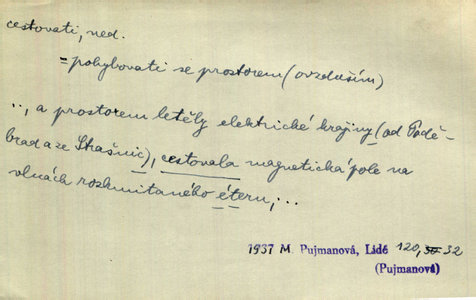 cestovati, ned.
= pohybovati se prostorem (ovzduším)
.., a prostorem letěly elektrické krajiny (od Podě-
brad a ze Strašnic), cestovala magnetická pole na
vlnách rozkmitaného éteru,...
1937 M. Pujmanová, Lidé 120, 32
(Pujmanová)